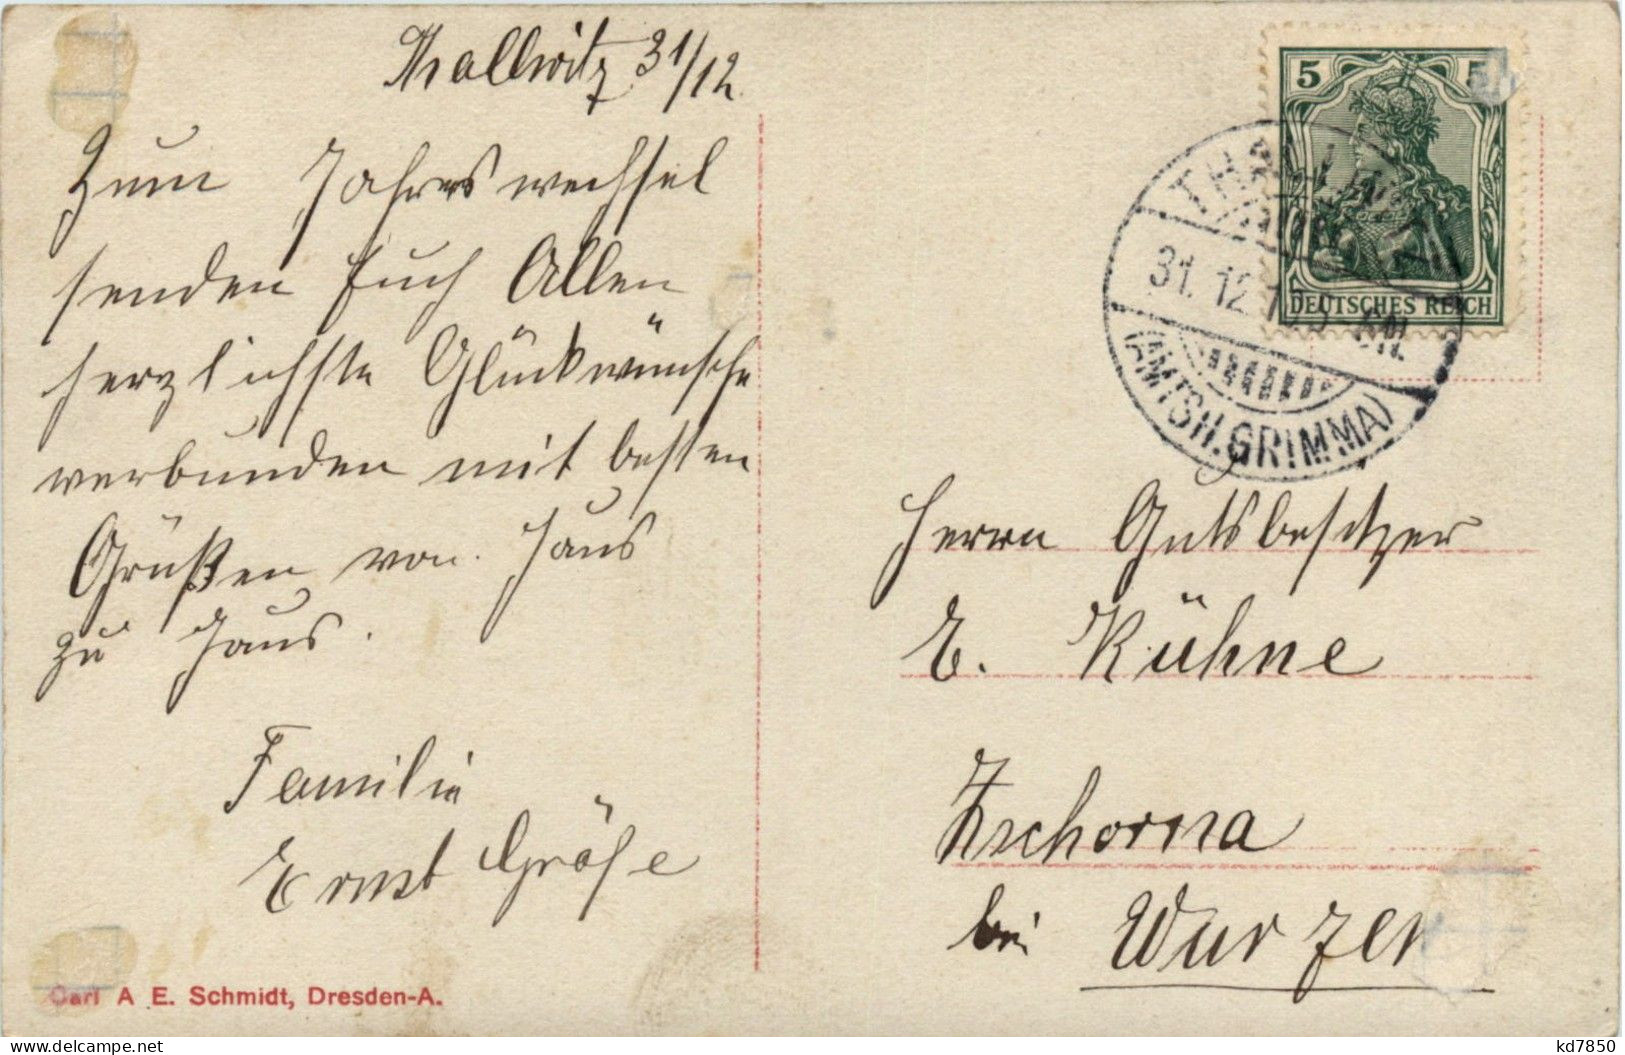 Thallwitz 31/12
Zum Jahreswechsel
senden Euch Allen
herzlichste Glückwünsche
verbunden mit besten
Grüßen von Haus
zu Haus.
Familie
Ernst Gräfe
Carl A E. Schmidt, Dresden-A.
5 5
DEUTSCHES REICH
THALLWITZ
31. 12.
(AMTSH. GRIMMA)
Herrn Gutsbesitzer
E. Kühne
Zschorna
bei Wurzen
kd7850